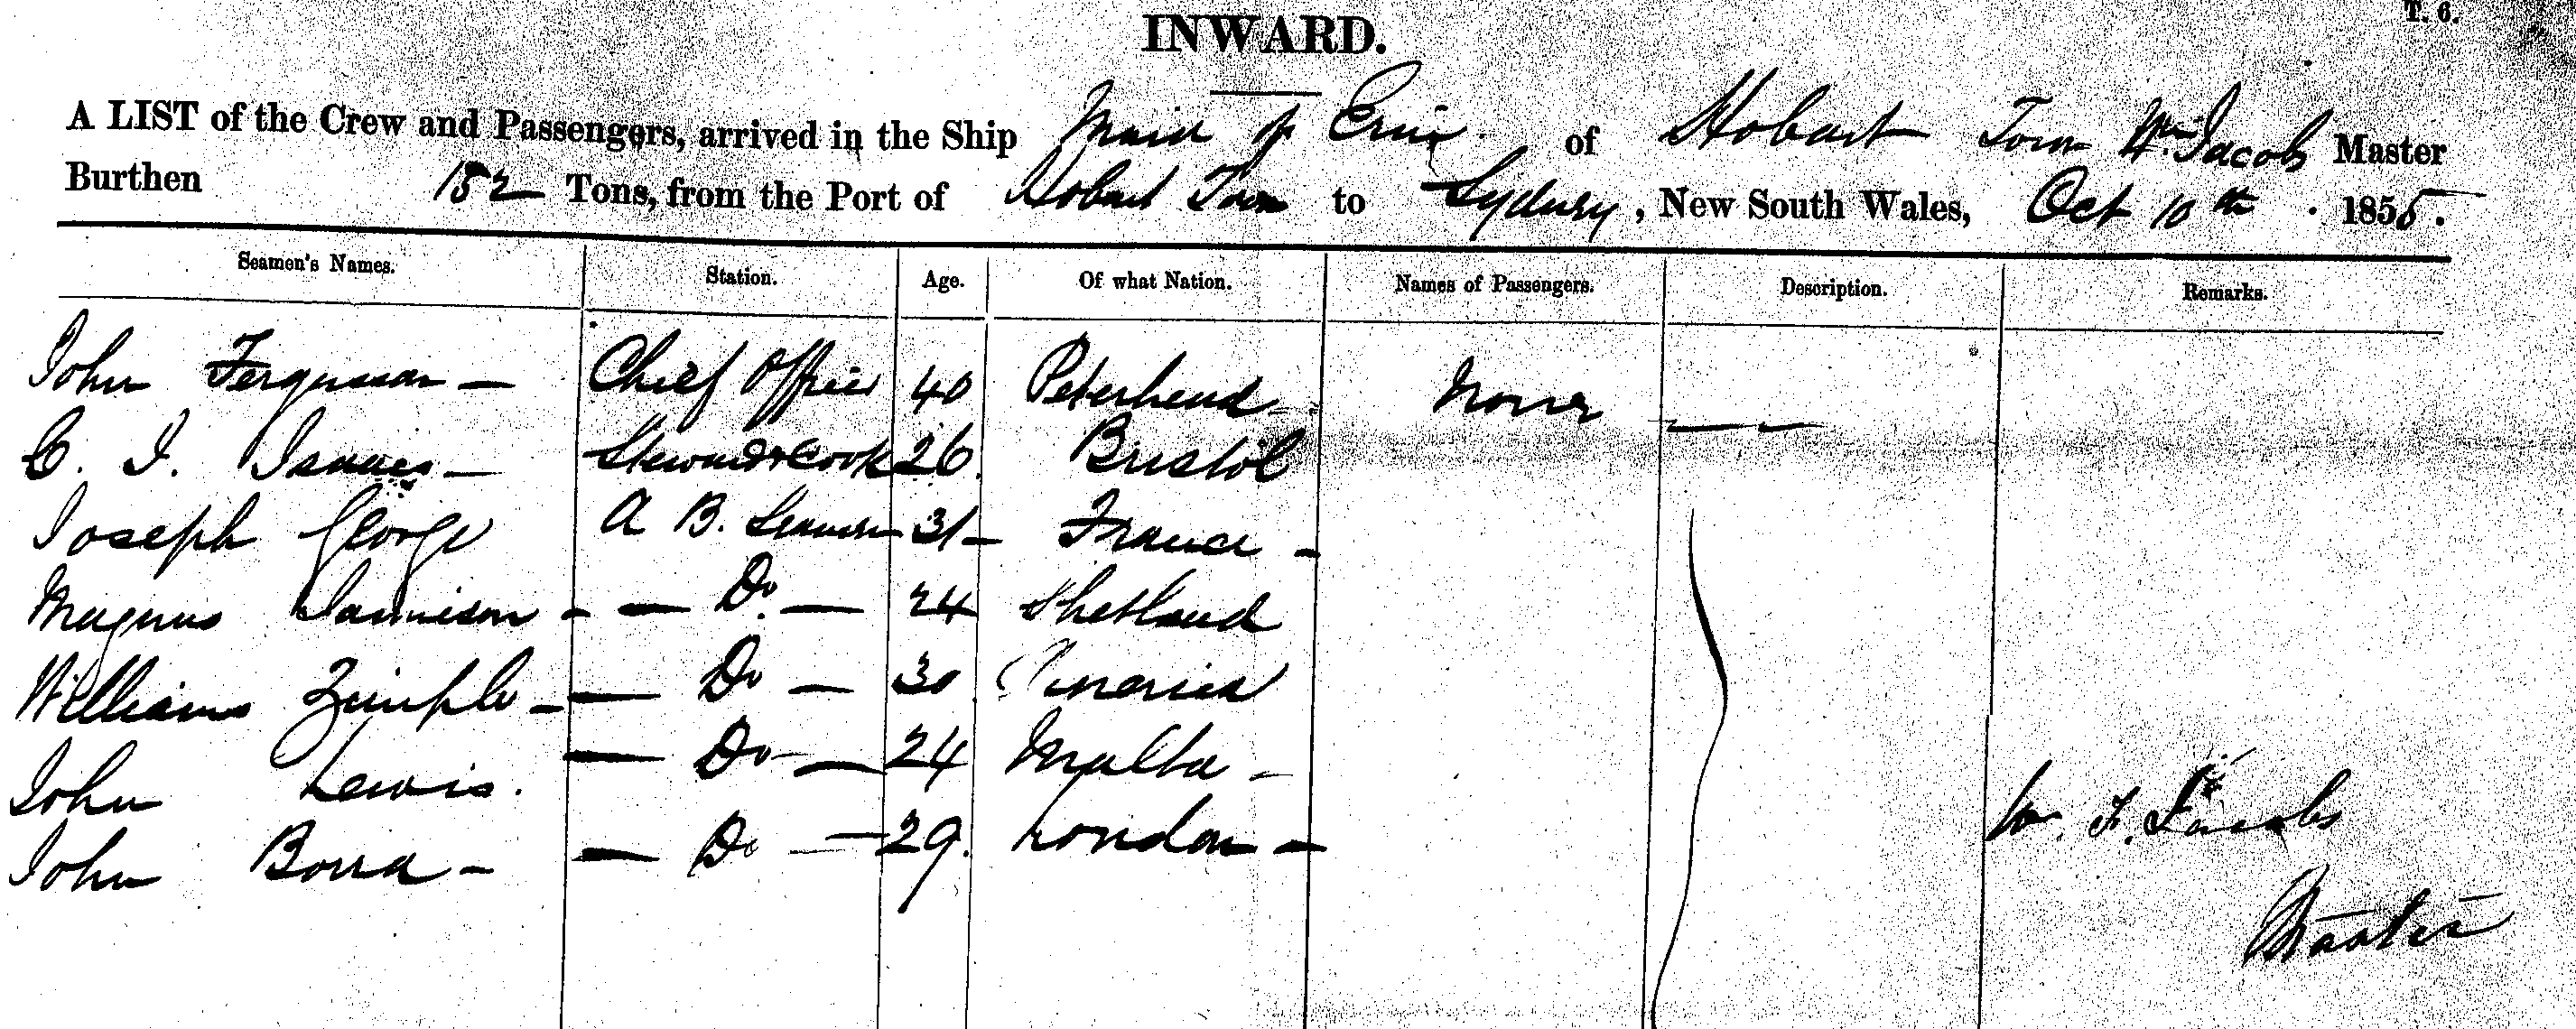 T. 6.
INWARD.
A LIST of the Crew and Passengers, arrived in the Ship Maid of Erin of Hobart Town Wm Jacobs Master
Burthen 152 Tons, from the Port of Hobart Town to Sydney, New South Wales, Oct 10th 1855.
Seamen's Names. Station. Age. Of what Nation. Names of Passengers. Description. Remarks.
John Ferguson — Chief Officer 40 Peterhead None — —
C. I. Isaacs — Steward & Cook 26. Bristol
Joseph George A B. Seaman 31 — France -
Magnus - — Do. — 24 Shetland
Williams — — Do — 30 America
John Lewis. — Do — 24 Malta -
John — Do — 29. London —
W. F. Jacobs
Master